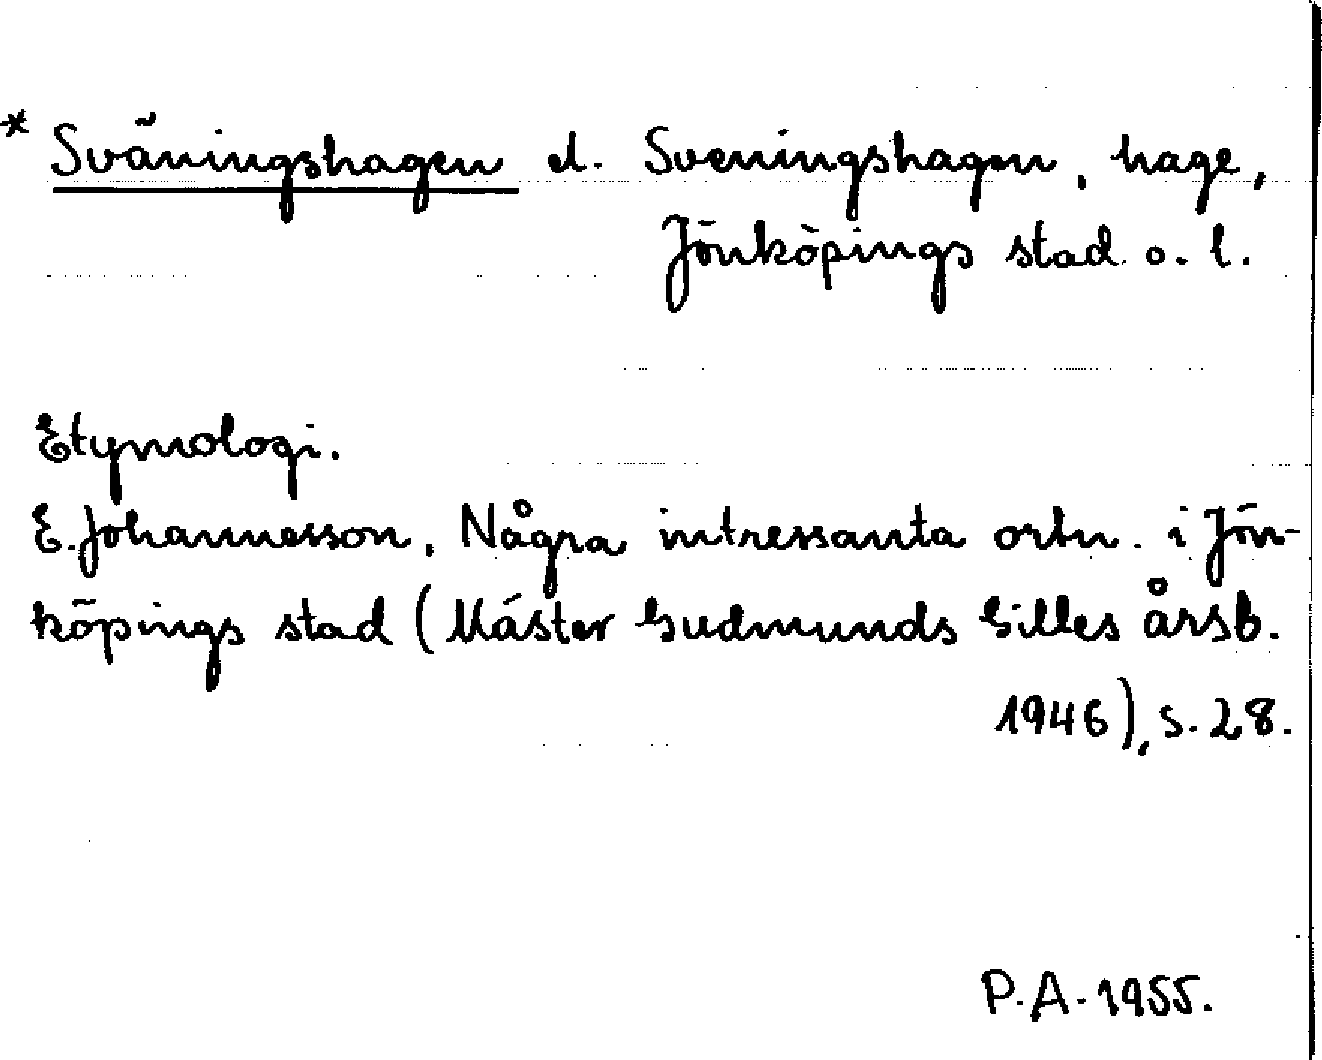 * Sväningshagen el. Sveningshagen, hage,
Jönköpings stad o. l.
Etymologi.
E. Johannesson, Några intressanta ortn. i Jön-
köpings stad (Mäster Gudmunds Gilles årsb.
1946), s. 28.
P. A. 1955.